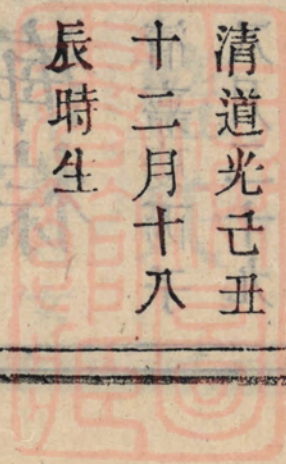 清道光己丑
十二月十八
辰時生